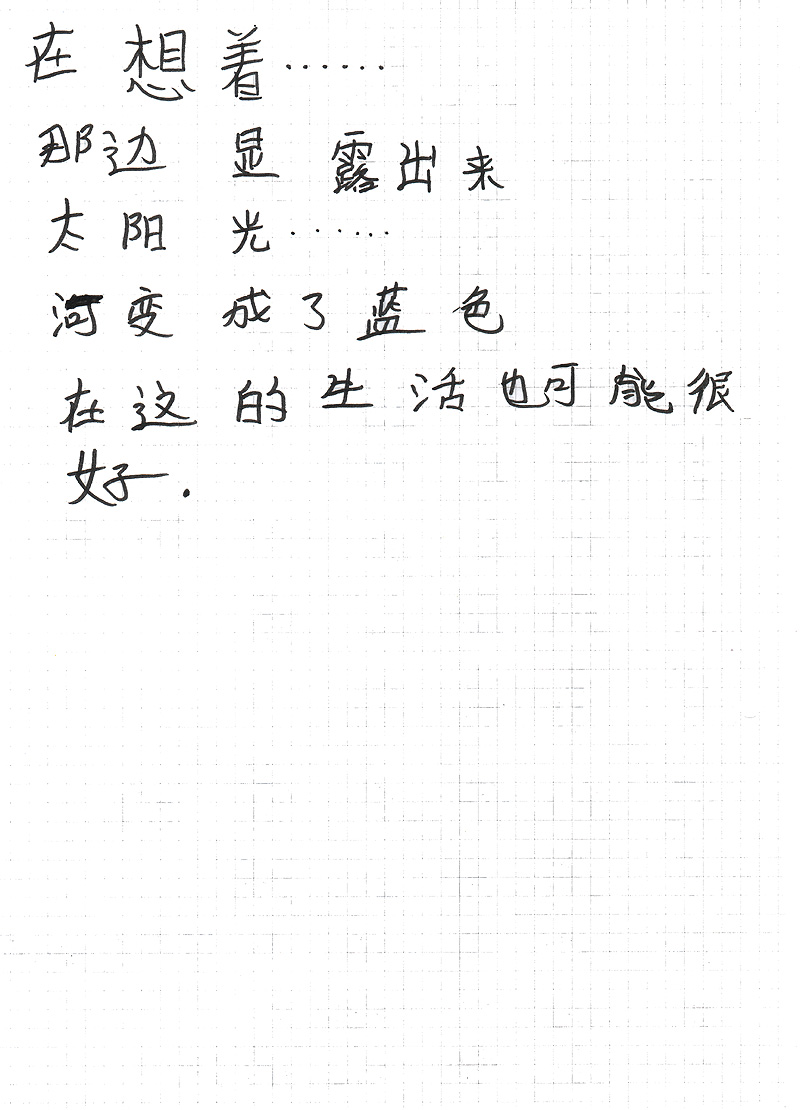 在想着……
那边显露出来
太阳光……
河变成了蓝色
在这的生活也可能很
好.